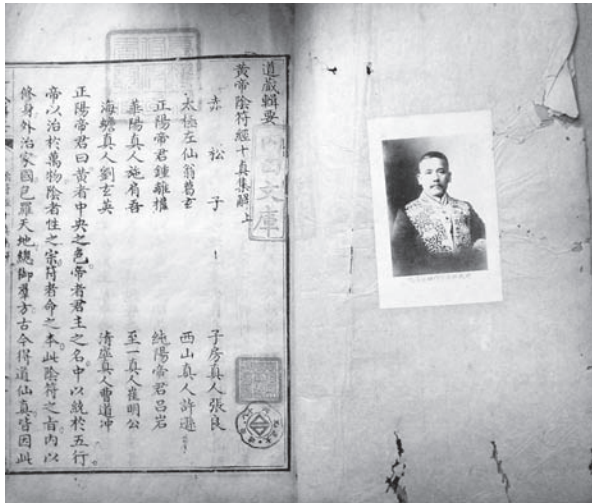 道藏輯要
黃帝陰符經十真集解上
赤松子　子房真人張良
太極左仙翁葛玄　西山真人許遜
正陽帝君鍾離權　純陽帝君呂岩
華陽真人施肩吾　至一真人崔明公
海蟾真人劉玄英　清虛真人曹道冲
正陽帝君曰黃者中央之色。帝者君主之名。中以統於五行。
帝以治於萬物。陰者性之宗。符者命之本。此陰符之旨。內以
修身。外治家國。包羅天地。總御羣方。古今得道仙真。皆因此
文庫